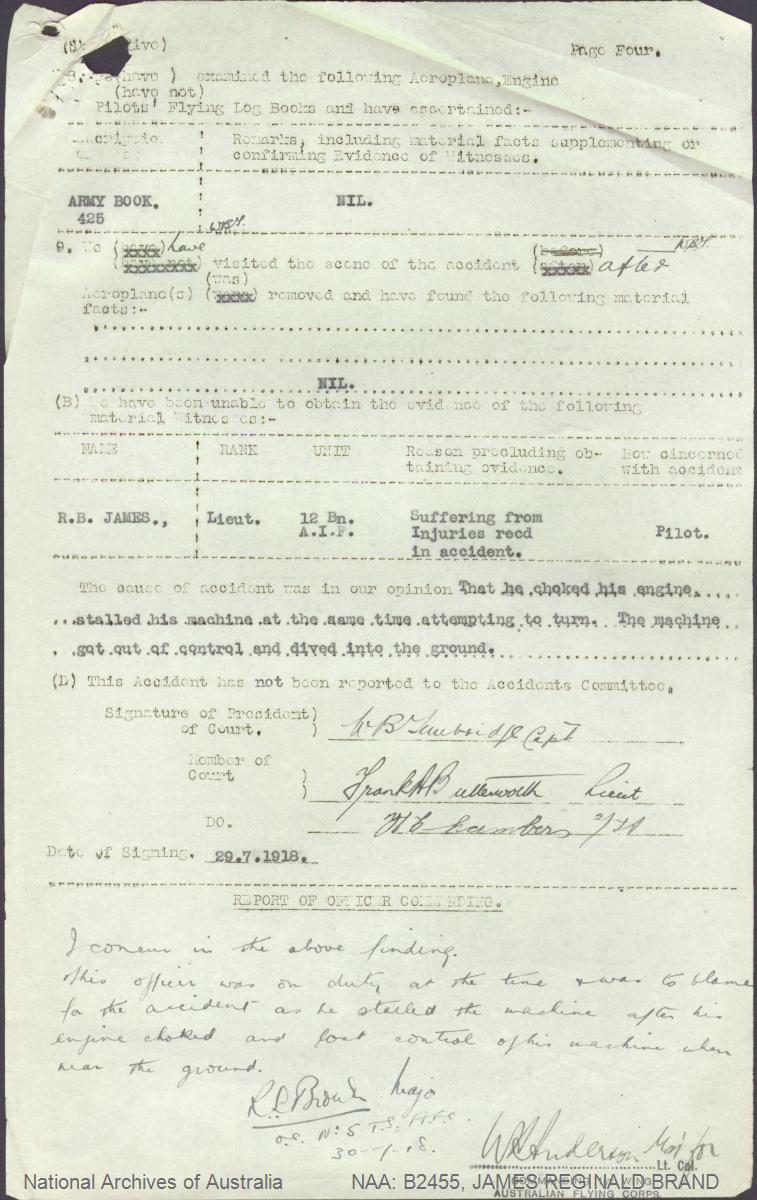 Page Four.
8. We (have ) examined the following Aeroplane,Engine
(have not)
Pilots' Flying Log Books and have ascertained:-
Remarks, including material facts supplementing or
confirming Evidence of Witnesses.
ARMY BOOK. NIL.
425
9. We (have) have (before)
(have not) visited the scene of the accident (after) after
(was)
Aeroplane(s) (were) removed and have found the following material
facts:-
NIL.
(B) We have been unable to obtain the evidence of the following
material Witnesses:-
NAME RANK UNIT Reason precluding ob- How cincerned
taining evidence. with accident
R.B. JAMES., Lieut. 12 Bn. Suffering from
A.I.F. Injuries recd Pilot.
in accident.
The cause of accident was in our opinion That he choked his engine,
stalled his machine at the same time attempting to turn. The machine
got out of control and dived into the ground.
(D) This Accident has not been reported to the Accidents Committee.
Signature of President)
of Court. ) W B Capt
Member of )
Court ) Frank A Butterworth Lieut
DO. Chambers 2/Lt
Date of Signing. 29.7.1918.
REPORT OF OFFICER COMMANDING.
I concur in the above finding.
This officer was on duty at the time & was to blame
for the accident as he stalled the machine after his
engine choked and lost control of his machine when
near the ground.
Major
O.C. No 5 T.S. A.F.C.
30-7-18.
W Anderson Maj for
Lt. Col.
COMMANDING 1st WING,
AUSTRALIAN FLYING CORPS.
National Archives of Australia NAA: B2455, JAMES REGINALD BRAND